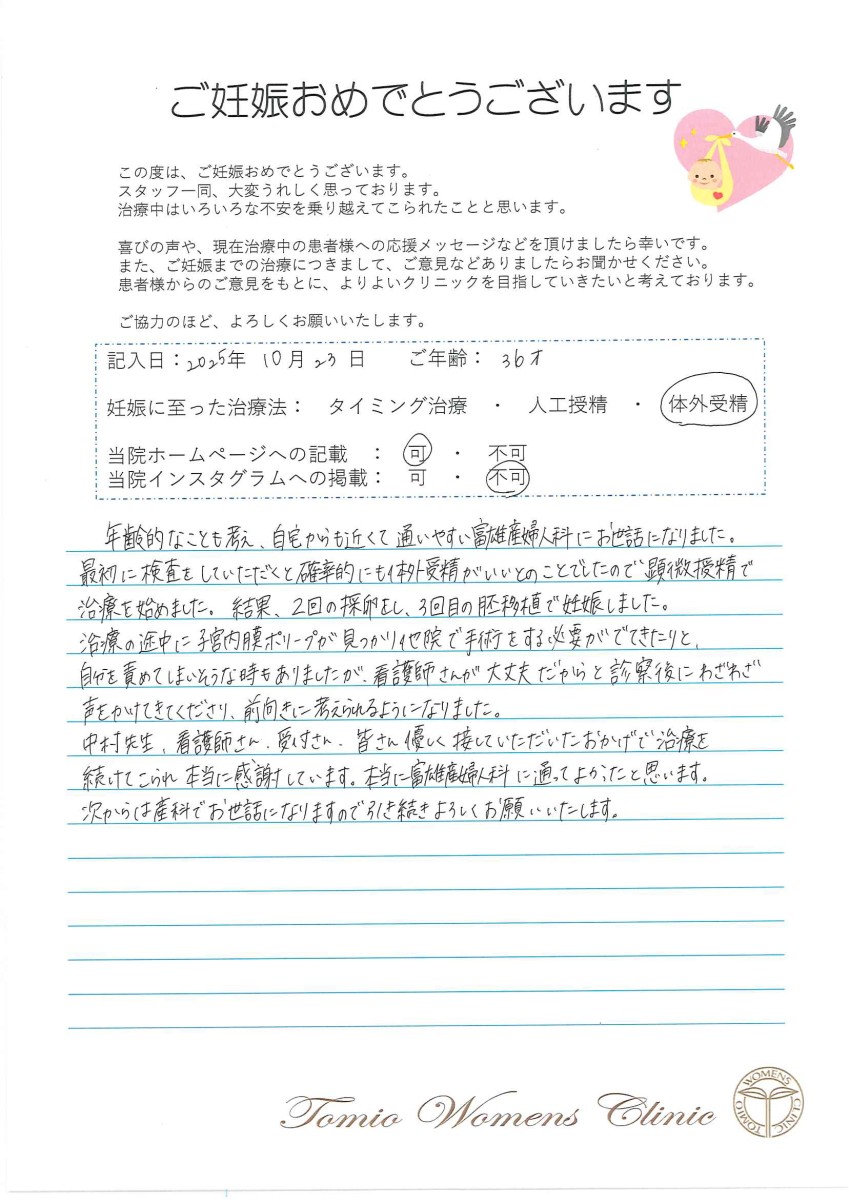 ご妊娠おめでとうございます
この度は、ご妊娠おめでとうございます。
スタッフ一同、大変うれしく思っております。
治療中はいろいろな不安を乗り越えてこられたことと思います。
喜びの声や、現在治療中の患者様への応援メッセージなどを頂けましたら幸いです。
また、ご妊娠までの治療につきまして、ご意見などありましたらお聞かせください。
患者様からのご意見をもとに、よりよいクリニックを目指していきたいと考えております。
ご協力のほど、よろしくお願いいたします。
記入日：2025年 10月 23日 ご年齢： 36才
妊娠に至った治療法： タイミング治療 ・ 人工授精 ・ 体外受精
当院ホームページへの記載 ： 可 ・ 不可
当院インスタグラムへの掲載： 可 ・ 不可
年齢的なことも考え、自宅からも近くて通いやすい富雄産婦人科にお世話になりました。
最初に検査をしていただくと確率的にも体外受精がいいとのことでしたので顕微授精で
治療を始めました。結果、2回の採卵をし、3回目の胚移植で妊娠しました。
治療の途中に子宮内膜ポリープが見つかり他院で手術をする必要がでてきたりと、
自分を責めてしまいそうな時もありましたが、看護師さんが大丈夫だからと診察後にわざわざ
声をかけてきてくださり、前向きに考えられるようになりました。
中村先生、看護師さん、受付さん、皆さん優しく接していただいたおかげで治療を
続けてこられ本当に感謝しています。本当に富雄産婦人科に通ってよかったと思います。
次からは産科でお世話になりますので引き続きよろしくお願いいたします。
Tomio Womens Clinic
TOMIO WOMENS CLINIC